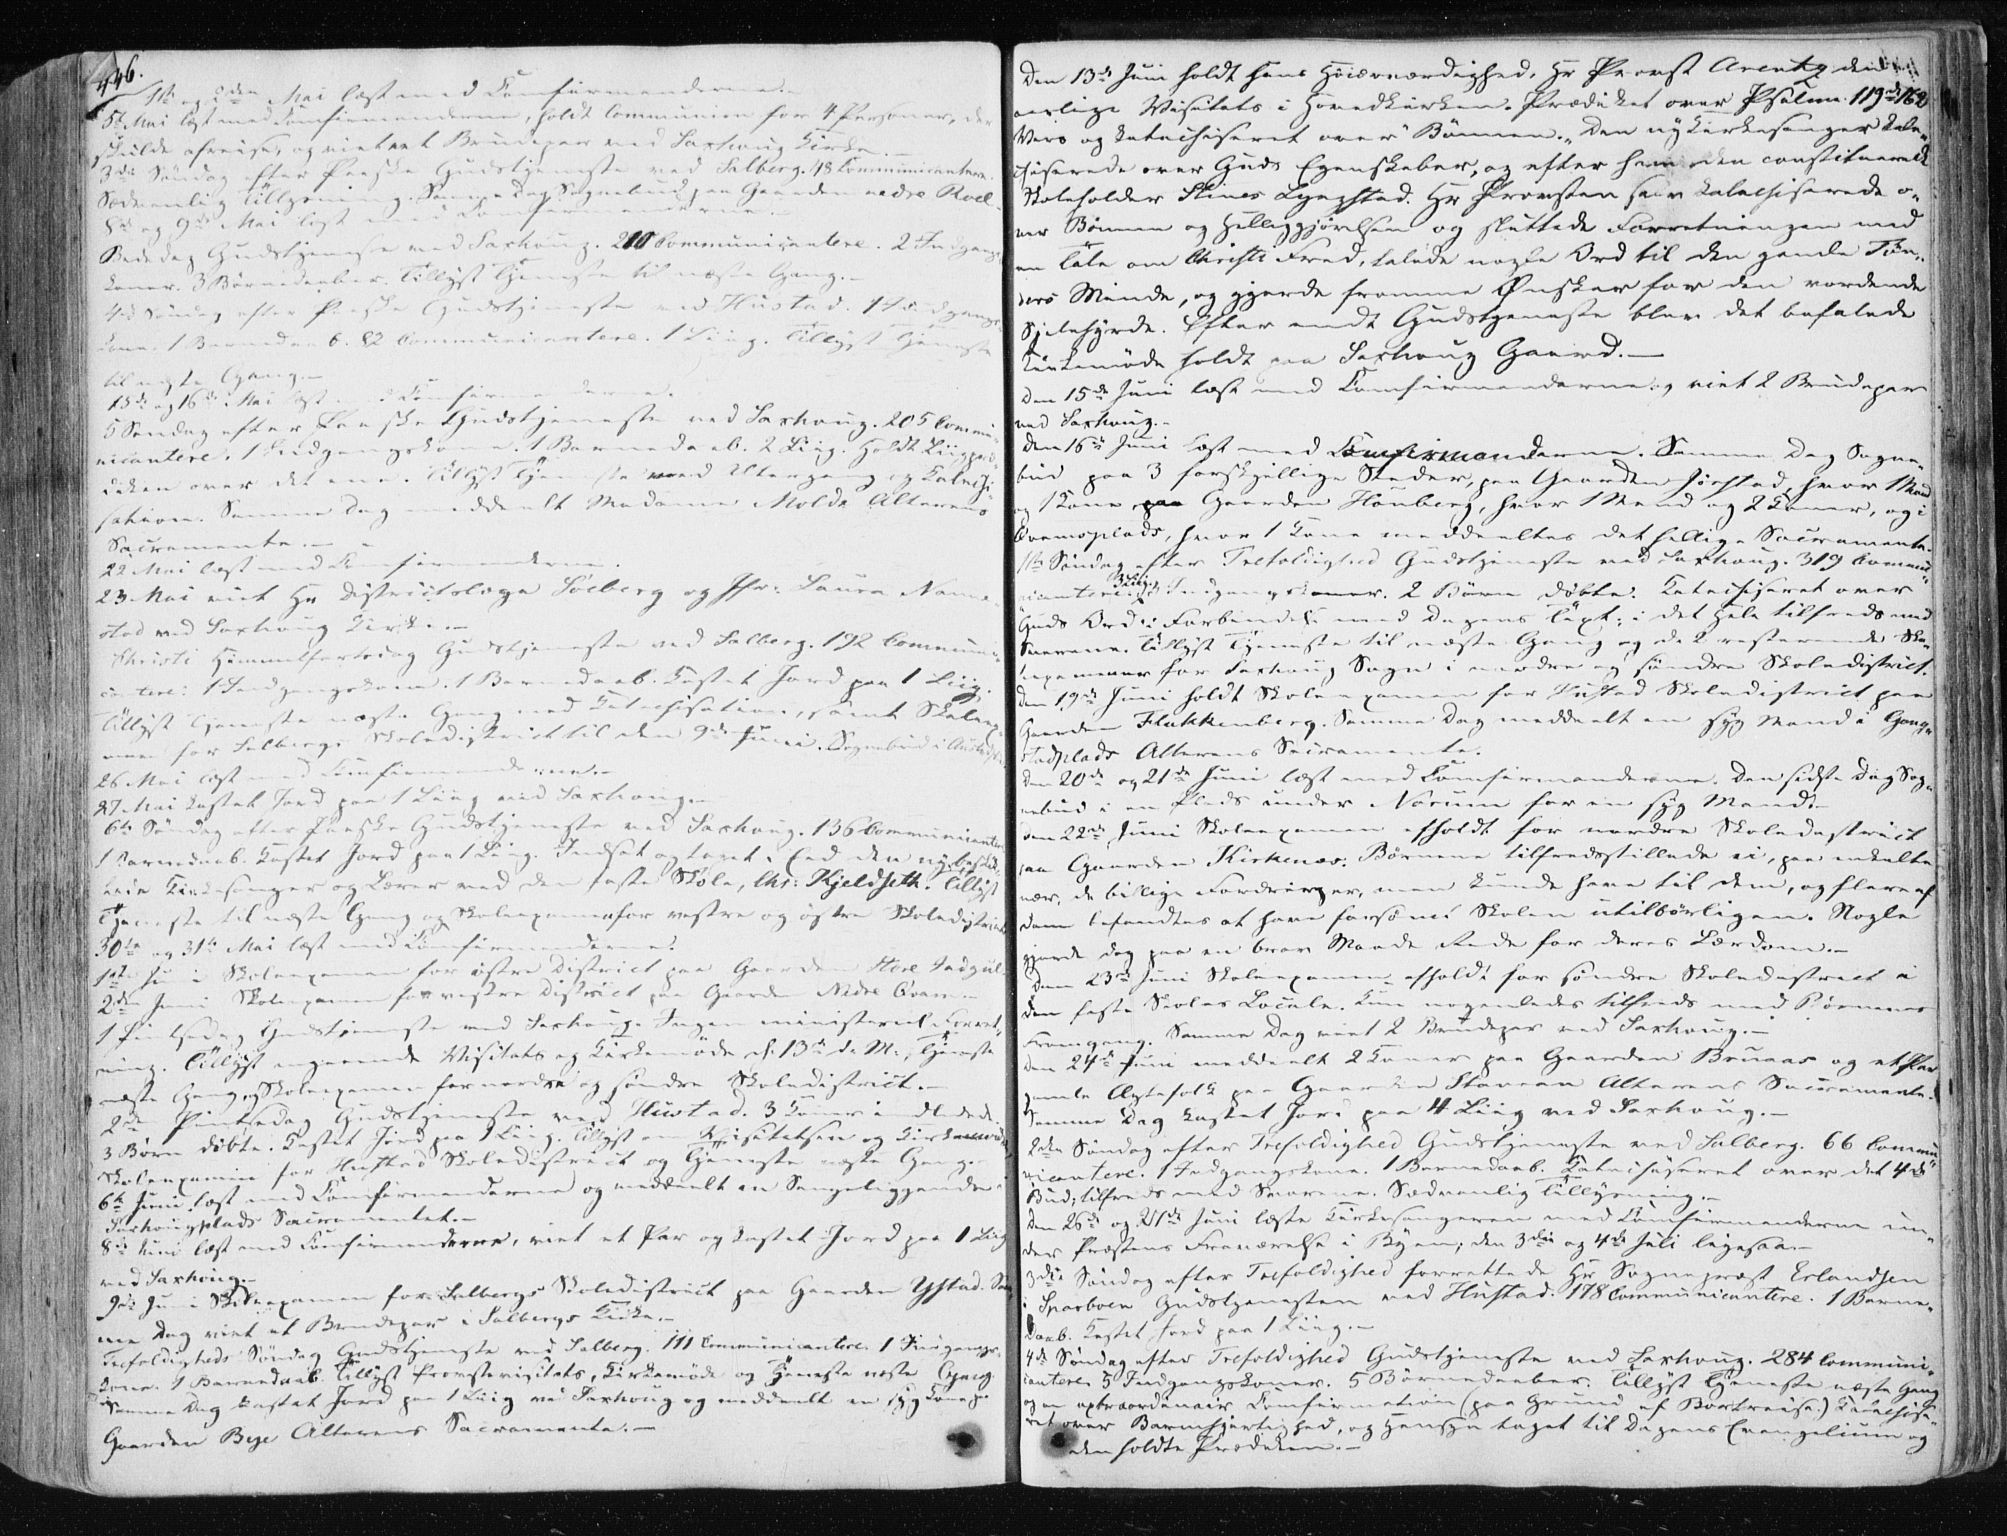 446.
1ste og 2den Mai læst med Confirmanderne.
5te Mai læst med Confirmanderne, holdt Communion for 4 Personer, der
skulde afreise, og viet et Brudepar ved Saxhoug Kirke.
3die Søndag efter Paaske Gudstjeneste ved Salberg. 48 Communicantere.
Sædvanlig Tillysning. Samme Dag Sognebud paa Gaarden nedre Roel.
8de og 9de Mai læst med Confirmanderne.
Bededag Gudstjeneste ved Saxhoug. 210 Communicantere. 2 Indgangs-
koner. 3 Børnedaaber. Tillyst Tjeneste til næste Gang.
4de Søndag efter Paaske Gudstjeneste ved Hustad. 1 Indgangs-
kone. 1 Barnedaab. 82 Communicantere. 1 Liig. Tillyst Tjeneste
til næste Gang.
15de og 16de Mai læst med Confirmanderne.
5 Søndag efter Paaske Gudstjeneste ved Saxhoug. 205 Commu-
nicantere. 1 Indgangskone. 1 Barnedaab. 2 Liig. Holdt Liigpræ-
diken over det ene. Tillyst Tjeneste med Altergang og Katechi-
sation. Samme Dag meddeelt Madame Molde Alterens
Sacramente.
22 Mai læst med Confirmanderne.
23 Mai viet Hr Districtslæge Solberg og Jfr: Laura Nanne-
stad ved Saxhoug Kirke.
Christi Himmelfartsdag Gudstjeneste ved Salberg. 192 Communi-
cantere. 1 Indgangskone. 1 Barnedaab. Kastet Jord paa 1 Liig.
Tillyst Tjeneste næste Gang med Katechisation, samt Skoleexa-
men for Salbergs Skoledistrict til den 9de Juni. Sognebud i
26 Mai læst med Confirmanderne.
27 Mai kastet Jord paa 1 Liig ved Saxhoug.
6te Søndag efter Paaske Gudstjeneste ved Saxhoug. 136 Communicantere
1 Barnedaab. Kastet Jord paa 1 Liig. Indsat og taget i Eed den ny beskik-
kede Kirkesanger og Lærer ved den faste Skole, Chr: Kjeldseth. Tillyst
Tjeneste til næste Gang og Skoleexamen for vestre og østre Skoledistrict
30te og 31te Mai læst med Confirmanderne.
1ste Juni Skoleexamen for østre District paa Gaarden Store
2den Juni Skoleexamen for vestre District paa Gaarden Nedre Qvam.
1 Pintsedag Gudstjeneste ved Saxhoug. Ingen ministeriel Forret-
ning. Tillyst angaaende Visitats og Kirkemøde d. 13de d. M., Tjeneste
næste Gang og Skoleexamen for nordre og søndre Skoledistrict.
2den Pintsedag Gudstjeneste ved Hustad. 3 Koner
3 Børn døbte. Kastet Jord paa 1 Liig. Tillyst om Visitatsen og Kirkemøde
Skoleexamen for Hustad Skoledistrict og Tjeneste næste Gang.
6te Juni læst med Confirmanderne og meddeelt en Sengeliggende i
Saxhougplads Sacramentet.
8de Juni læst med Confirmanderne, viet et Par og kastet Jord paa 1 Liig
ved Saxhoug.
9de Juni Skoleexamen for Salbergs Skoledistrict paa Gaarden Ystad. Sam-
me Dag viet et Brudepar i Salbergs Kirke.
Trefoldigheds Søndag Gudstjeneste ved Salberg. 111 Communicantere. 1 Indgangs-
kone. 1 Barnedaab. Tillyst Provstevisitats, Kirkemøde og Tjeneste næste Gang.
Samme Dag kastet Jord paa 1 Liig ved Saxhoug og meddeelt en syg Kone paa
Gaarden Bege Alterens Sacramente.
Den 13de Juni holdt hans Høiærværdighed, Hr Provst Arentz den
aarlige Visitats i Hovedkirken. Prædiket over Psalm. 119de 162
Vers og katechiseret over Bønnen. Den ny Kirkesanger kate-
chiserede over Guds Egenskaber, og efter ham den constituerede
Skoleholder Stines Lyngstad. Hr Provsten selv katechiserede o-
ver Bønnen og Helliggjørelsen og sluttede Forretningen med
en Tale om Christi Fred, talede nogle Ord til den gamle Tøn-
ders Minde, og gjorde fromme Ønsker for den vordende
Sjælehyrde. Efter endt Gudstjeneste blev det befalede
Kirkemøde holdt paa Saxhoug Gaard.
Den 15de Juni læst med Confirmanderne, og viet 2 Brudepar
ved Saxhoug.
Den 16de Juni læst med Confirmanderne. Samme Dag Sogne-
bud paa 3 forskjellige Steder, paa Gaarden Jørstad, hvor 1 Mand
og 1 Kone, paa Gaarden Hønberg, hvor 1 Mand og 2 Koner, og i
Qvamsplads, hvor 1 Kone meddeeltes det hellige Sacramente.
1ste Søndag efter Trefoldighed Gudstjeneste ved Saxhoug. 319 Commu-
nicantere. Indgangskoner. 2 Børn døbte. Katechiseret over
Guds Ord i Forbindelse med Dagens Text; i det Hele tilfreds med
Svarene. Tillyst Tjeneste til næste Gang og de 2 resterende Sko-
leexamener for Saxhoug Sogn i nordre og søndre Skoledistrict.
Den 19de Juni holdt Skoleexamen for Hustad Skoledistrict paa
Gaarden Flekkenberg. Samme Dag meddeelt en syg Mand i Gang-
stadplads Alterens Sacramente.
Den 20de og 21de Juni læst med Confirmanderne. Den sidste Dag Sog-
nebud i en Plads under Norum for en syg Mand.
Den 22de Juni Skoleexamen afholdt for nordre Skoledistrict
paa Gaarden Kirkenæs. Børnene tilfredsstillede ei, paa enkelte
nær, de billige Fordringer, man kunde have til dem, og flere af
dem befandtes at have forsømt Skolen utilbørligen. Nogle
gjorde dog paa en brav Maade Rede for deres Lærdom.
Den 23de Juni Skoleexamen afholdt for søndre Skoledistrict i
den faste Skoles Locale. Kun nogenledes tilfreds med Børnenes
Fremgang. Samme Dag viet 2 Brudepar ved Saxhoug.
Den 24de Juni meddeelt 2 Koner paa Gaarden Brunaas og et Par
gamle Ægtefolk paa Gaarden Stavran Alterens Sacramente.
Samme Dag kastet Jord paa 4 Liig ved Saxhoug.
2den Søndag efter Trefoldighed Gudstjeneste ved Salberg. 66 Commu-
nicantere. 1 Indgangskone. 1 Barnedaab. Katechiseret over det 4de
Bud; tilfreds med Svarene. Sædvanlig Tillysning.
Den 26de og 27de Juni læste Kirkesangeren med Confirmanderne un-
der Præstens Fraværelse i Byen; den 3die og 4de Juli ligesaa.
3die Søndag efter Trefoldighed forrettede Hr Sognepræst Erlandsen
i Sparboen Gudstjenesten ved Hustad. 178 Communicantere. 1 Barne-
daab. Kastet Jord paa 1 Liig.
4de Søndag efter Trefoldighed Gudstjeneste ved Saxhoug. 284 Communi-
cantere. 5 Indgangskoner. 5 Børnedaaber. Tillyst Tjeneste næste Gang
og en extraordinair Confirmation (paa Grund af Bortreise.) Katechise-
ret over Barmhjertighed, og Hensyn taget til Dagens Evangelium og
den holdte Prædiken.